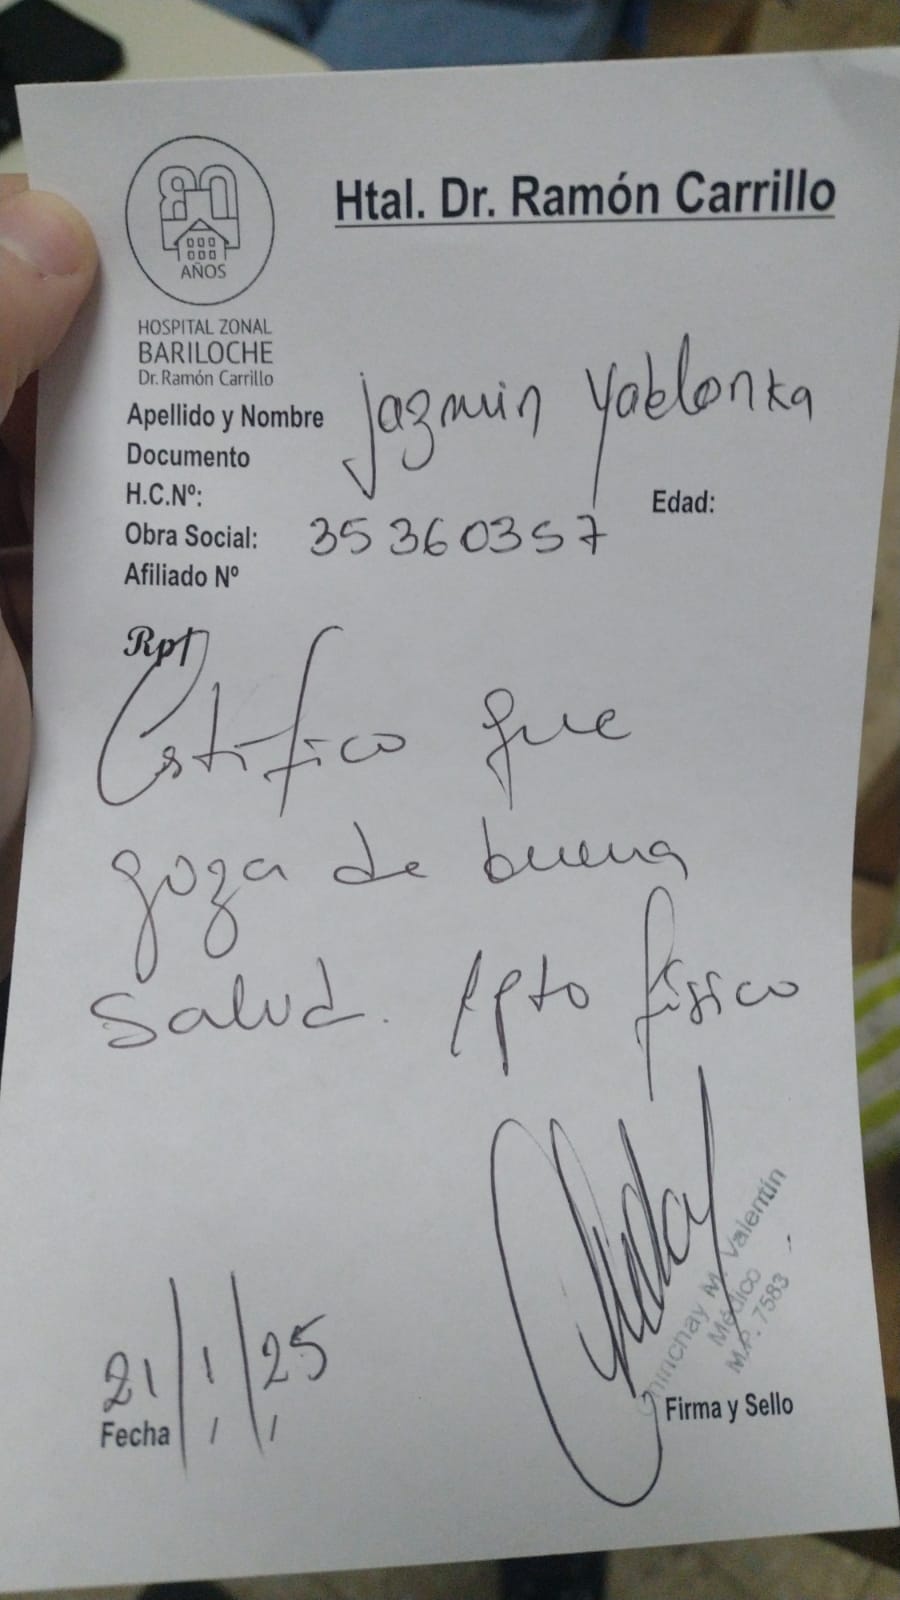 80
AÑOS
HOSPITAL ZONAL
BARILOCHE
Dr. Ramón Carrillo
Htal. Dr. Ramón Carrillo
Apellido y Nombre Jazmin Yablonka
Documento
H.C.Nº:
Edad:
Obra Social: 35360357
Afiliado Nº
Rp/
Certifico que
goza de buena
salud. Apto físico
Chinchay M. Valentín
Médico
M.P. 7583
21/1/25
Fecha
Firma y Sello